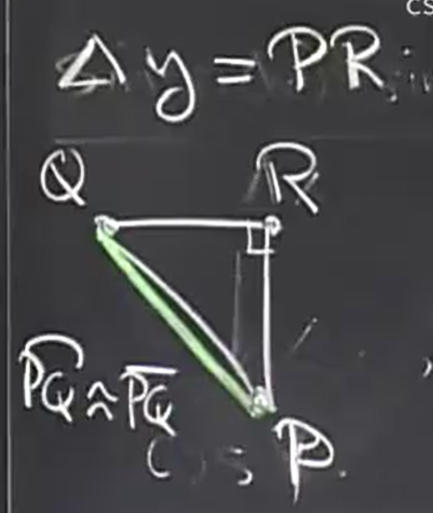 Δy = PR
Q R
P͡Q ≈ P̅Q̅
P